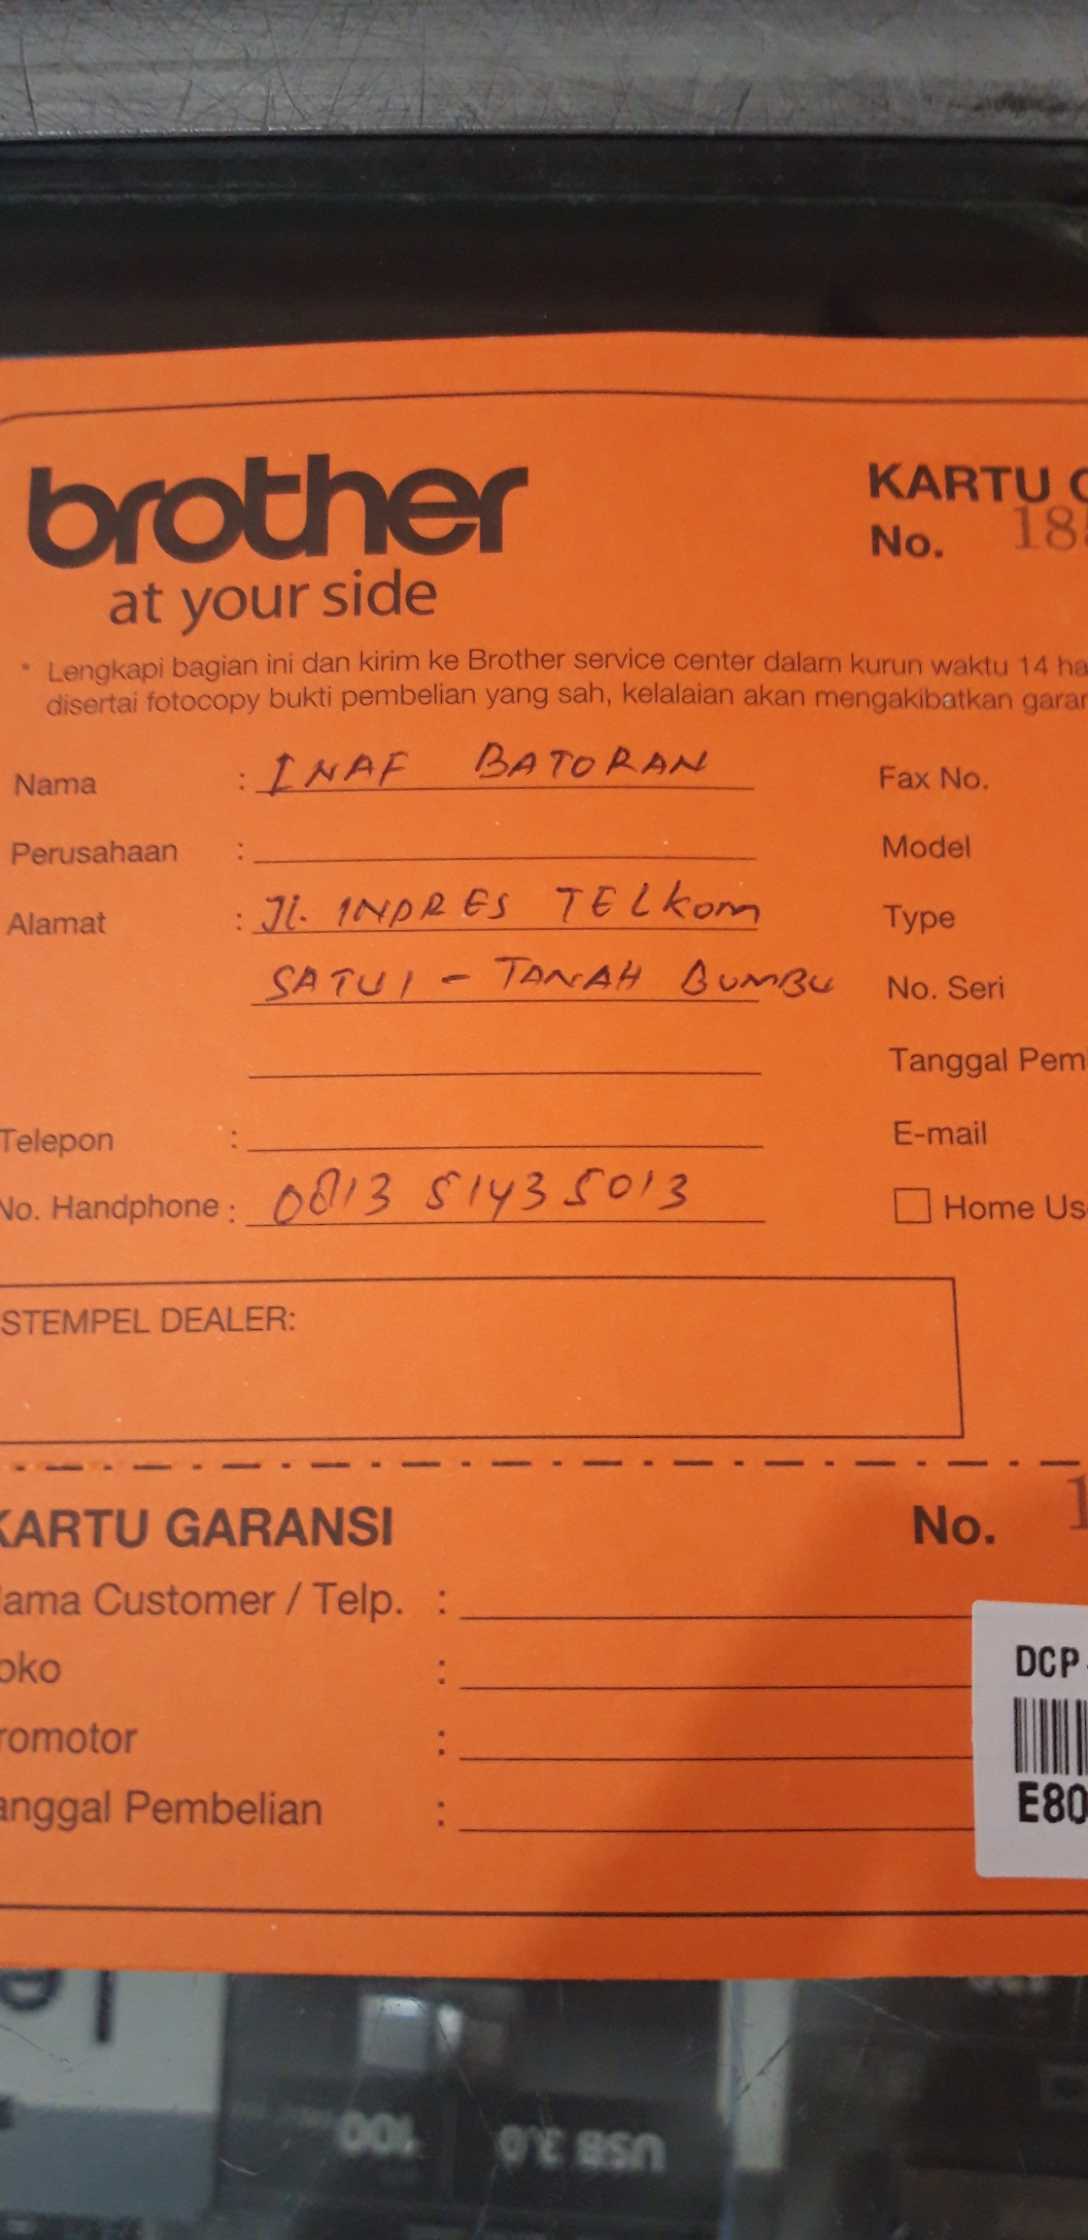 brother
at your side
KARTU
No. 18
* Lengkapi bagian ini dan kirim ke Brother service center dalam kurun waktu 14 ha
disertai fotocopy bukti pembelian yang sah, kelalaian akan mengakibatkan garan
Nama : INAF BATORAN Fax No.
Perusahaan : Model
Alamat : Jl. INPRES TELKOM Type
SATUI - TANAH BUMBU No. Seri
Tanggal Pem
Telepon : E-mail
No. Handphone : 0813 51435013 Home Us
STEMPEL DEALER:
KARTU GARANSI No. 1
ama Customer / Telp. :
oko :
romotor :
anggal Pembelian :
DCP-
E80
100 USB 3.0